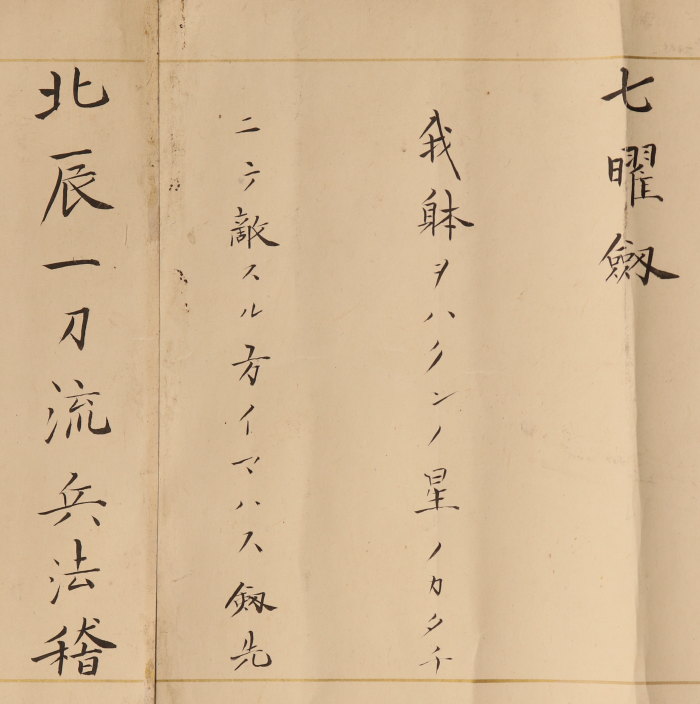 七曜劔
我躰ヲハクンノ星ノカタチ
ニテ敵スル方イマハス劔先
北辰一刀流兵法稽